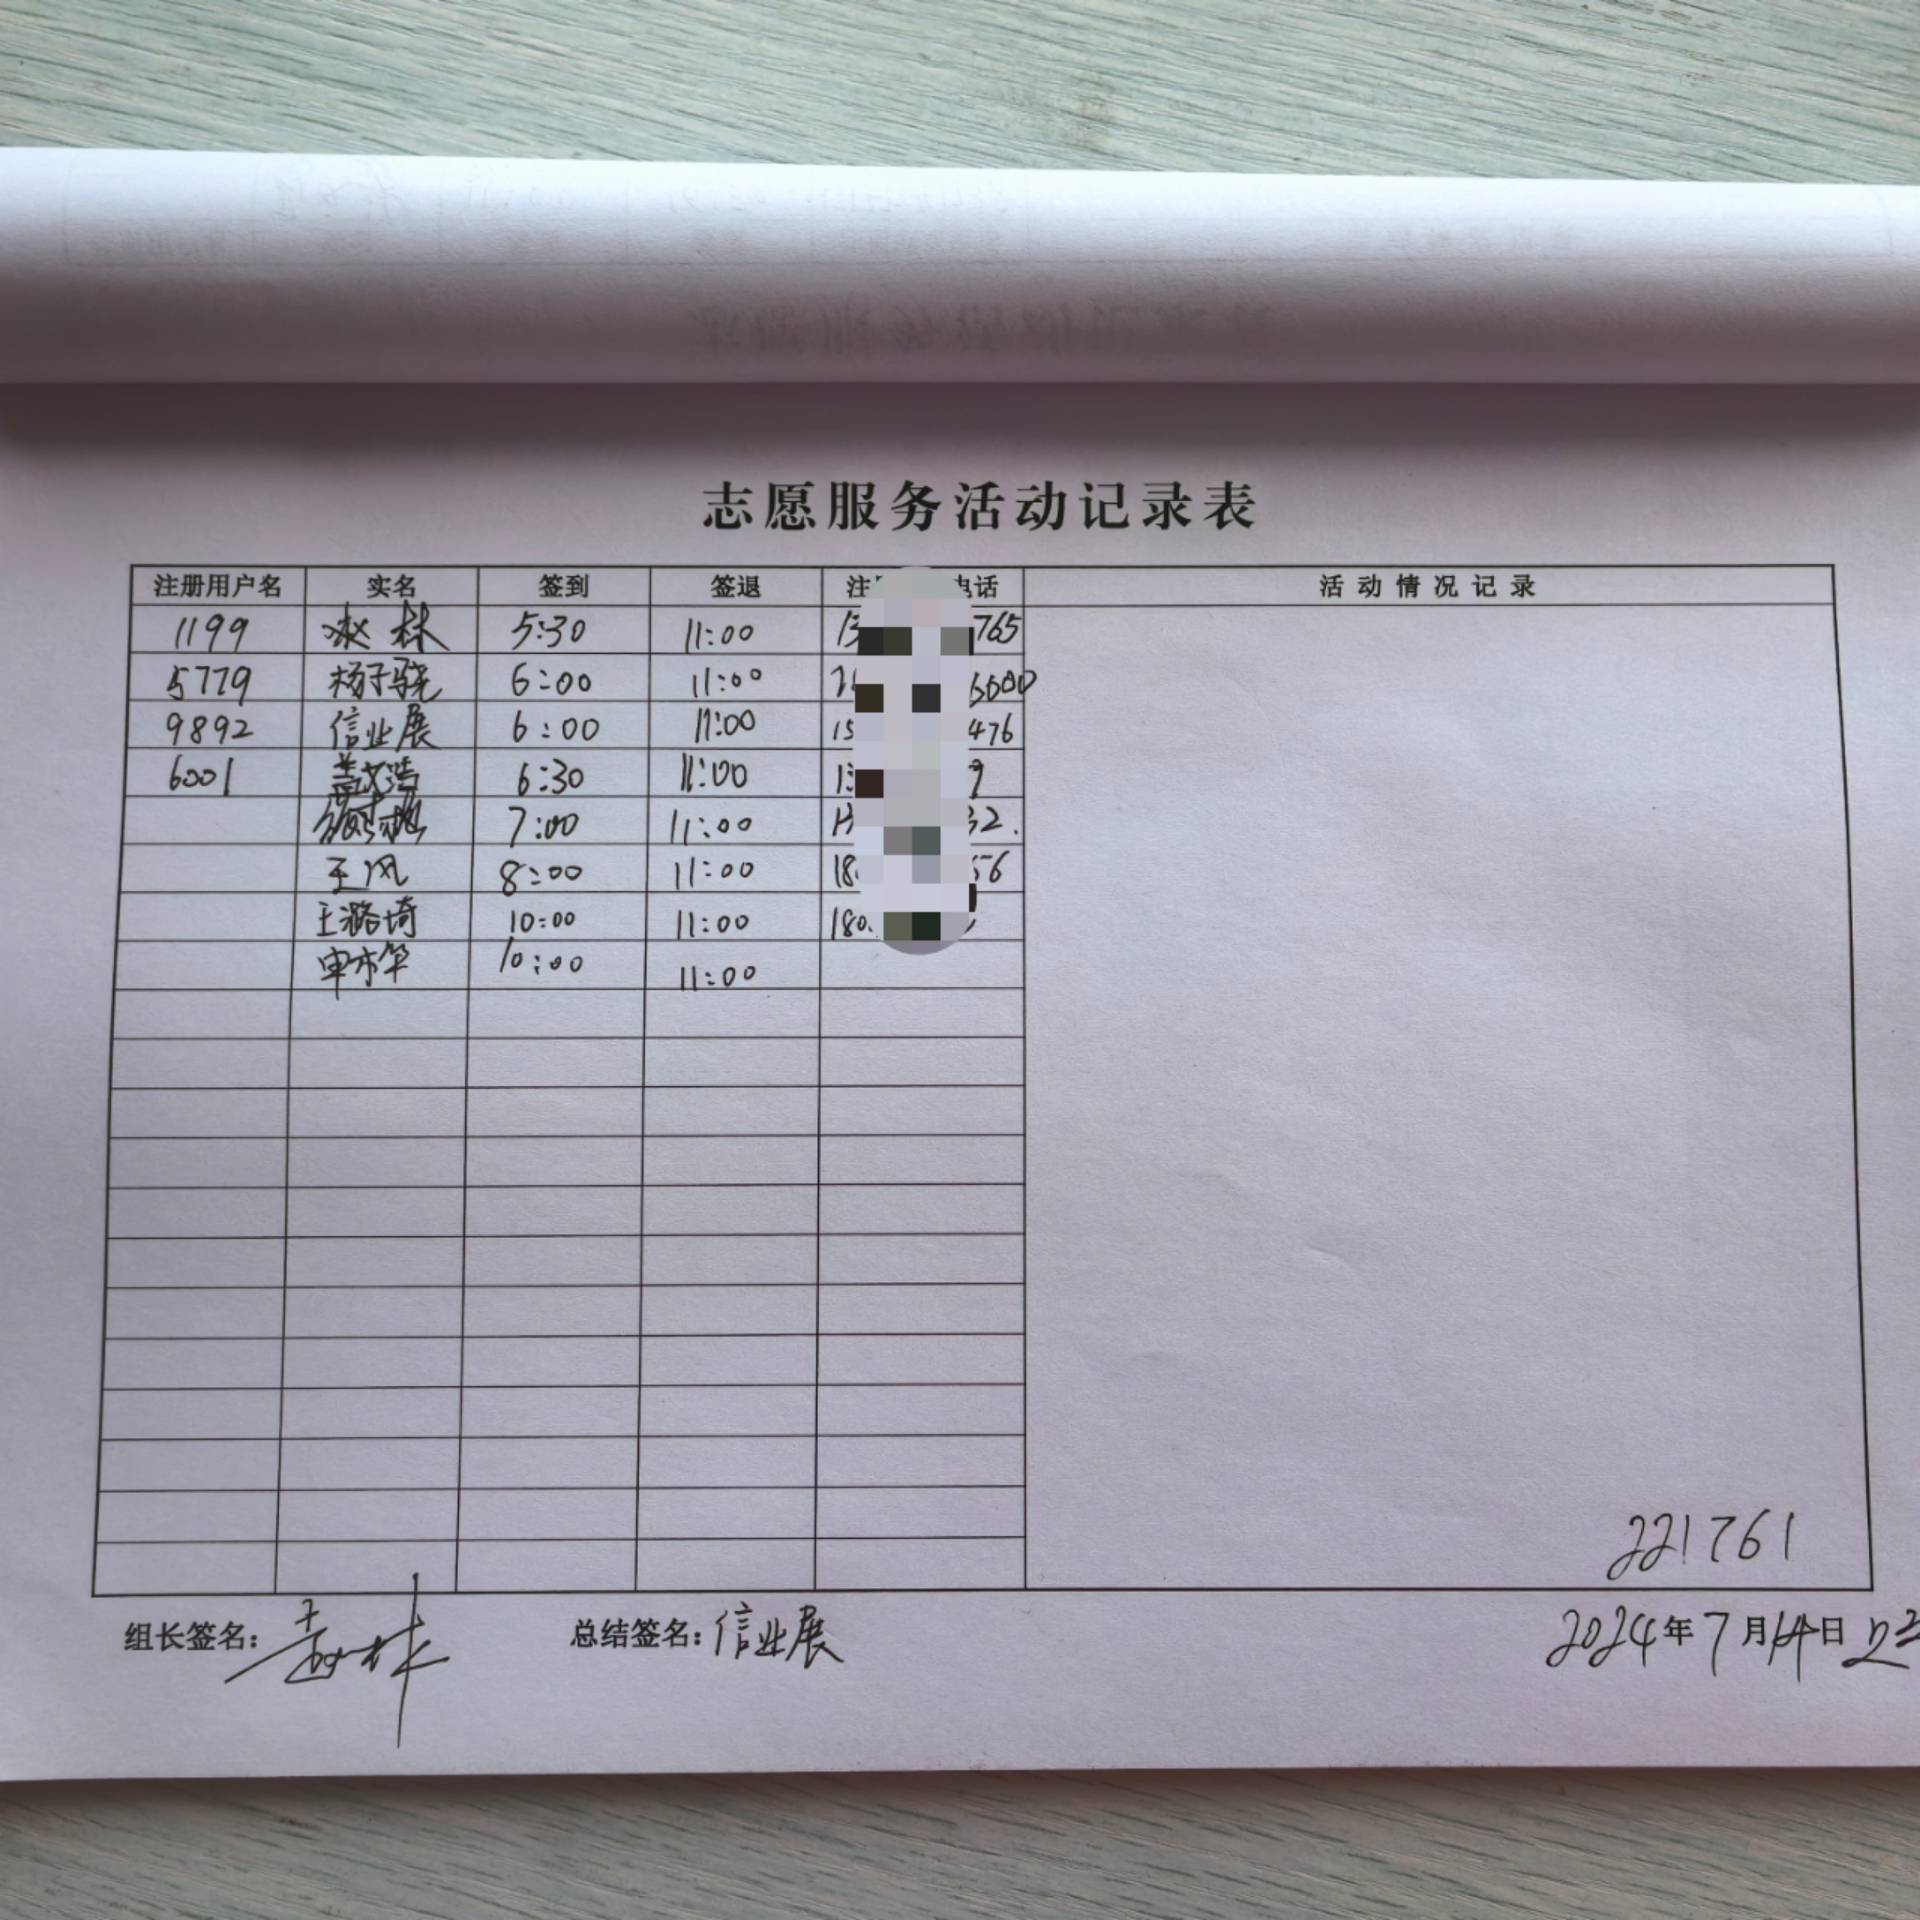 志愿服务活动记录表
注册用户名 实名 签到 签退 注 电话 活动情况记录
1199 林 5:30 11:00 13 765
5779 杨子骁 6:00 11:00 6000
9892 信业展 6:00 11:00 15 476
6001 盖文浩 6:30 11:00 13 9
7:00 11:00 32.
王风 8:00 11:00 18 56
王潞琦 10:00 11:00 180
申木华 10:00 11:00
221761
组长签名: 总结签名:信业展 2024年7月14日